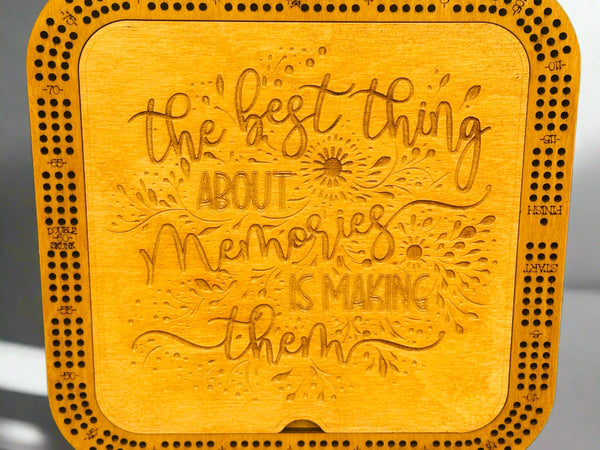 the best thing
ABOUT
Memories
IS MAKING
them
-70-
-65-
DOUBLE
-60-
SKUNK
-55-
-50-
-45-
-110-
-115-
FINISH
START
-10-